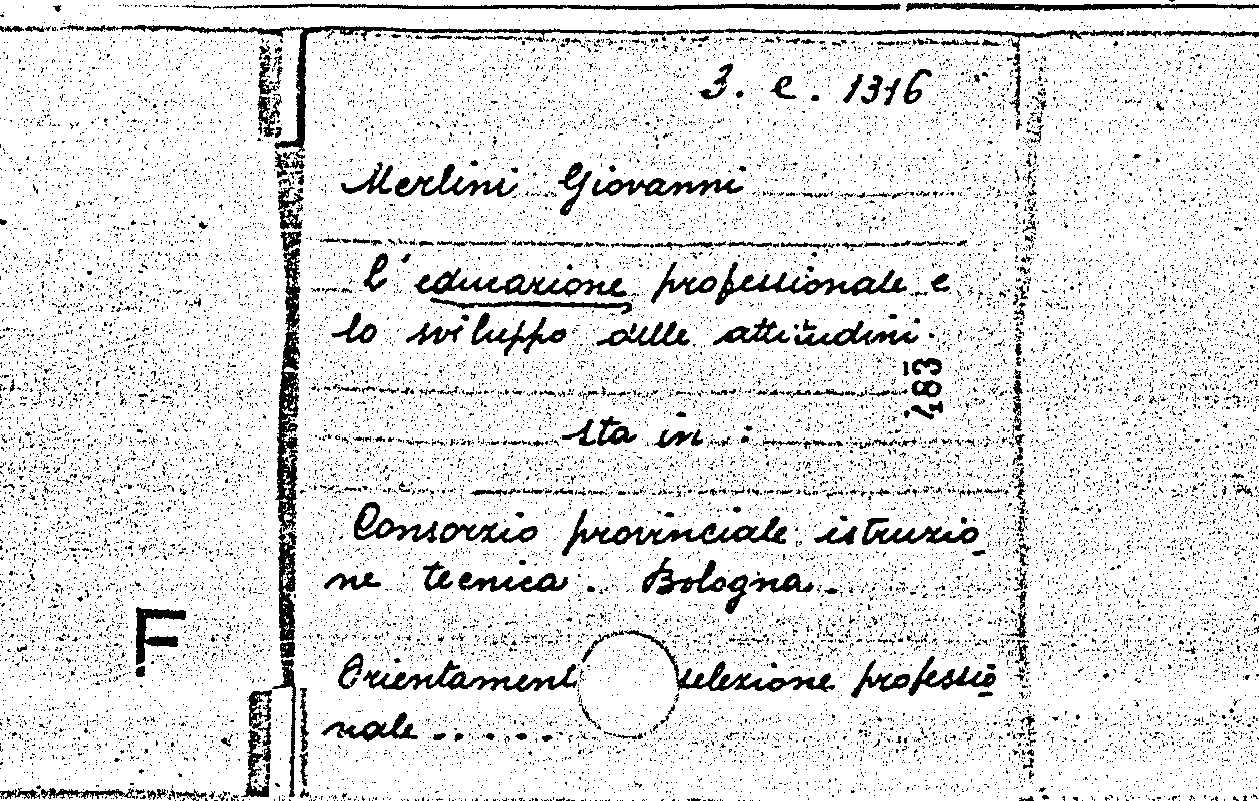 3. e. 1316
Merlini Giovanni
L'educazione professionale e
lo sviluppo delle attitudini.
483
sta in :
Consorzio provinciale istruzio
ne tecnica. Bologna.
Orientament selezione professio
nale .....
F